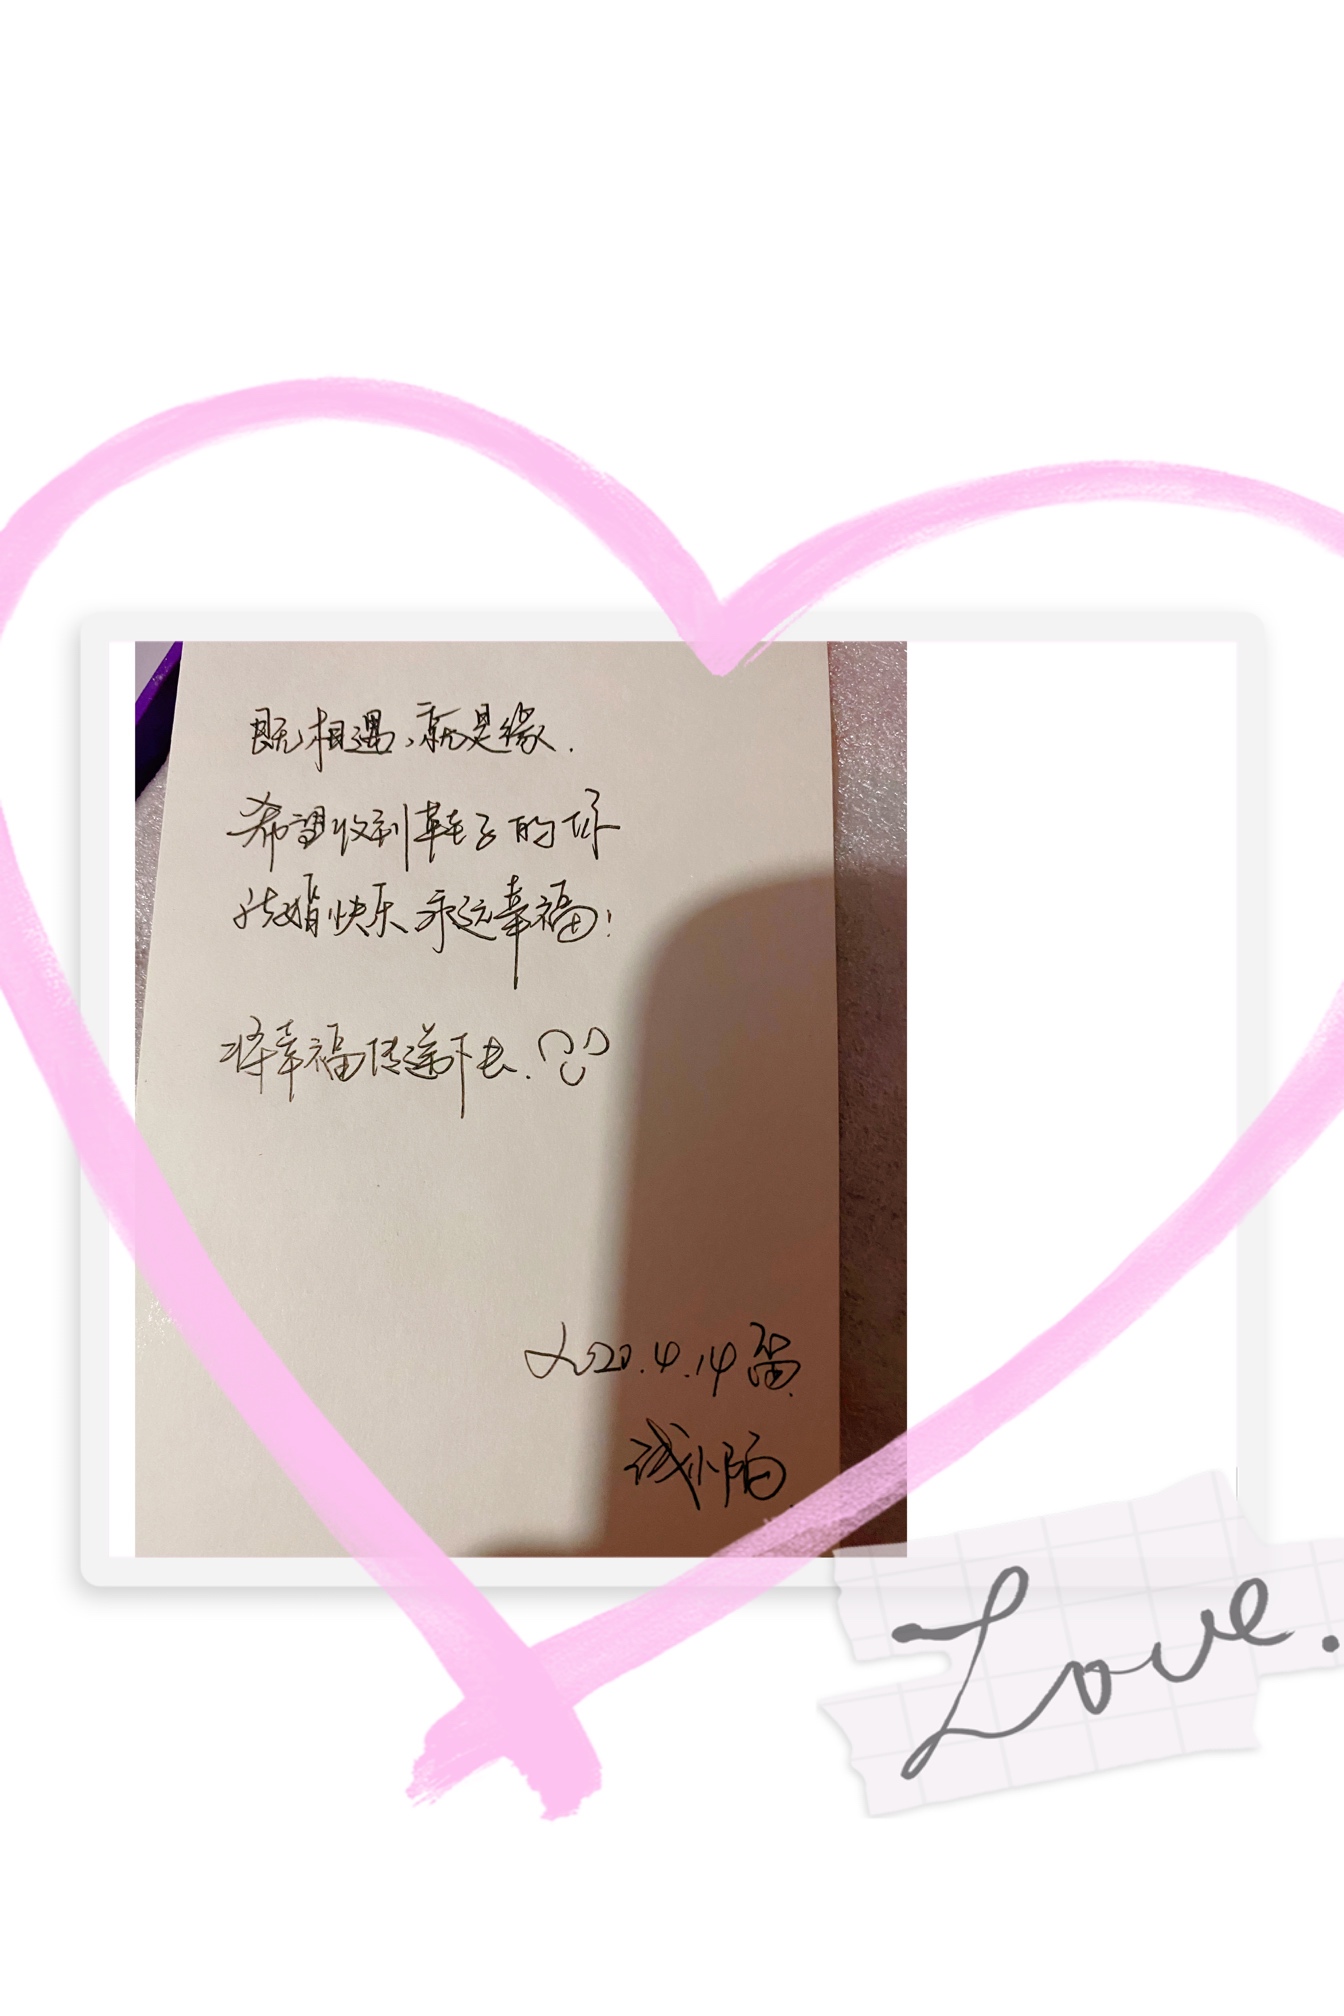 既相遇,就是缘.
希望收到鞋子的你
结婚快乐 永远幸福!
将幸福传递下去.
2020.4.14 留.
Love.